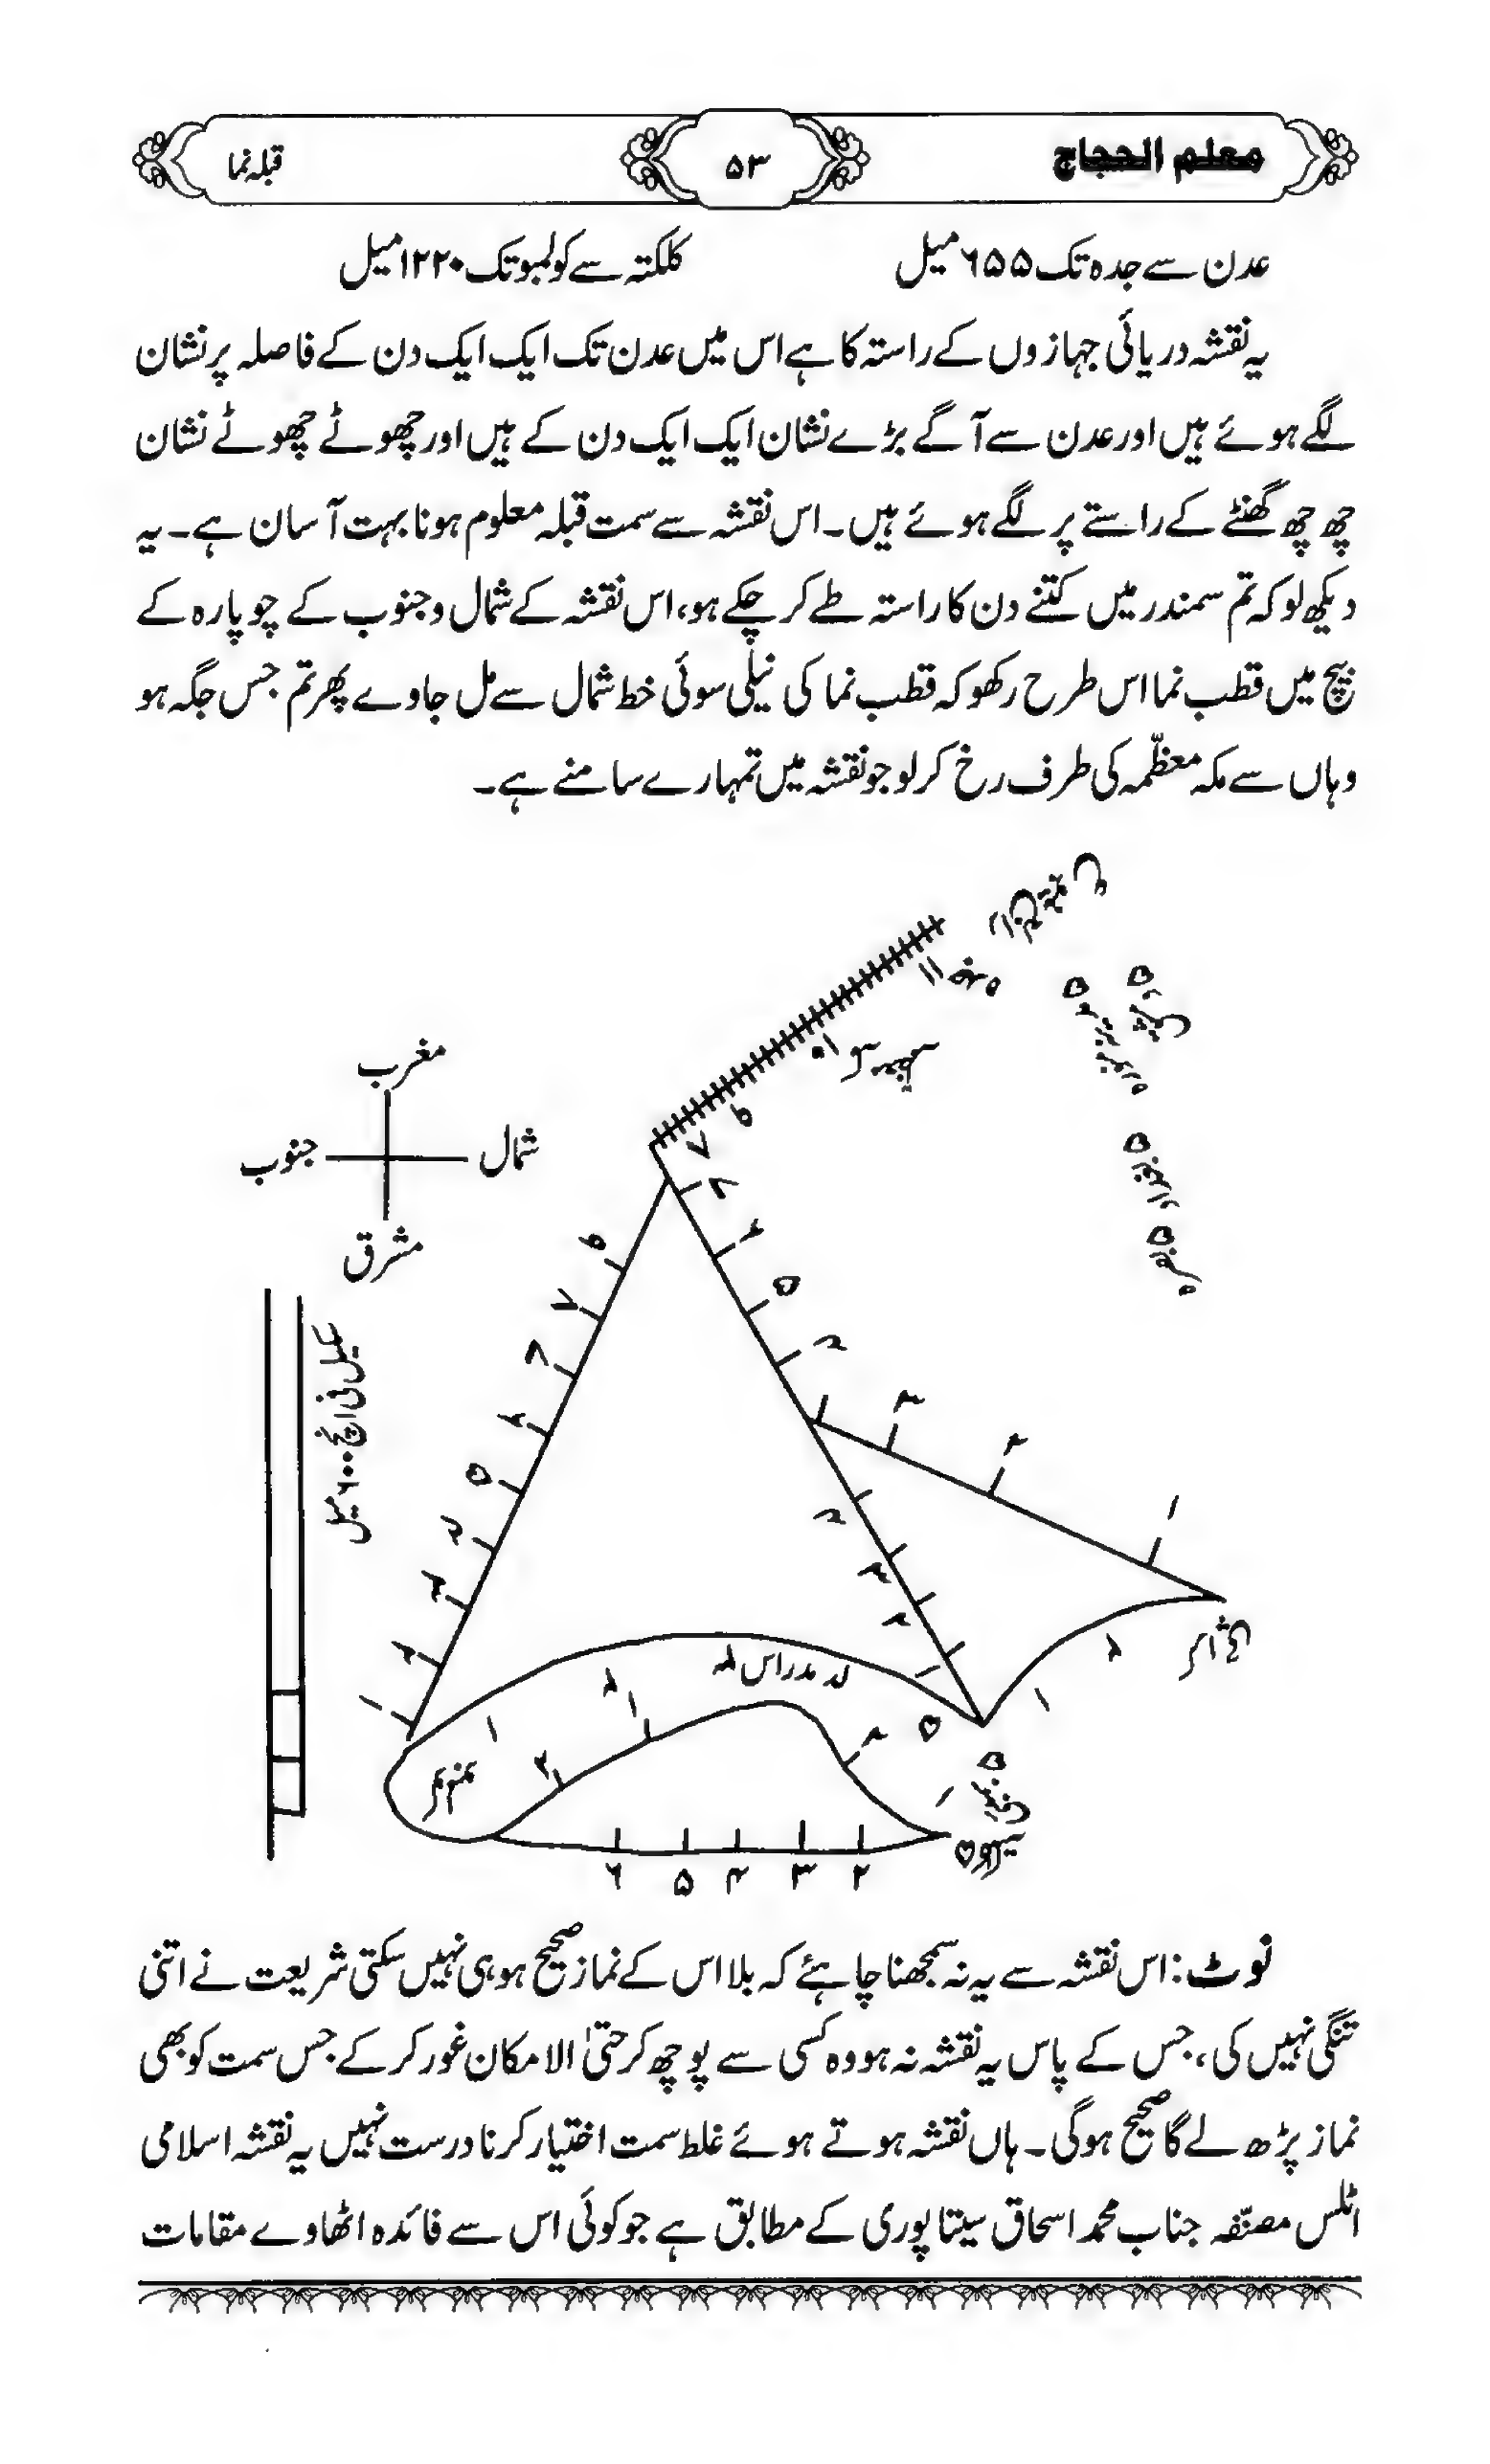 معلم الحجاج
۵۳
قبلہ نما
عدن سے جدہ تک ۶۵۵ میل
کلکتہ سے کولمبو تک ۱۲۲۰ میل
یہ نقشہ دریائی جہازوں کے راستہ کا ہے اس میں عدن تک ایک ایک دن کے فاصلہ پر نشان
لگے ہوئے ہیں اور عدن سے آگے بڑے نشان ایک ایک دن کے ہیں اور چھوٹے چھوٹے نشان
چھ چھ گھنٹے کے راستے پر لگے ہوئے ہیں۔ اس نقشہ سے سمت قبلہ معلوم ہونا بہت آسان ہے۔ یہ
دیکھ لو کہ تم سمندر میں کتنے دن کا راستہ طے کر چکے ہو، اس نقشہ کے شمال و جنوب کے چوپارہ کے
بیچ میں قطب نما اس طرح رکھو کہ قطب نما کی نیلی سوئی خط شمال سے مل جاوے پھر تم جس جگہ ہو
وہاں سے مکہ معظّمہ کی طرف رخ کر لو جو نقشہ میں تمہارے سامنے ہے۔
۱۱
۱۰
مغرب
شمال
جنوب
مشرق
۹
۸
۷
۶
۵
۴
۳
۲
۱
۹
۸
۷
۶
۵
۴
۳
۲
۱
۴
۳
۲
فی انچ ۶۰۰ میل
مدراس
۱
۲
۳
۶
۵
۴
۳
۲
نوٹ: اس نقشہ سے یہ نہ سمجھنا چاہئے کہ بلا اس کے نماز صحیح ہو ہی نہیں سکتی شریعت نے اتنی
تنگی نہیں کی، جس کے پاس یہ نقشہ نہ ہو وہ کسی سے پوچھ کر حتیٰ الامکان غور کر کے جس سمت کو بھی
نماز پڑھ لے گا صحیح ہوگی۔ ہاں نقشہ ہوتے ہوئے غلط سمت اختیار کرنا درست نہیں یہ نقشہ اسلامی
اٹلس مصنّفہ جناب محمد اسحاق سیتاپوری کے مطابق ہے جو کوئی اس سے فائدہ اٹھاوے مقامات